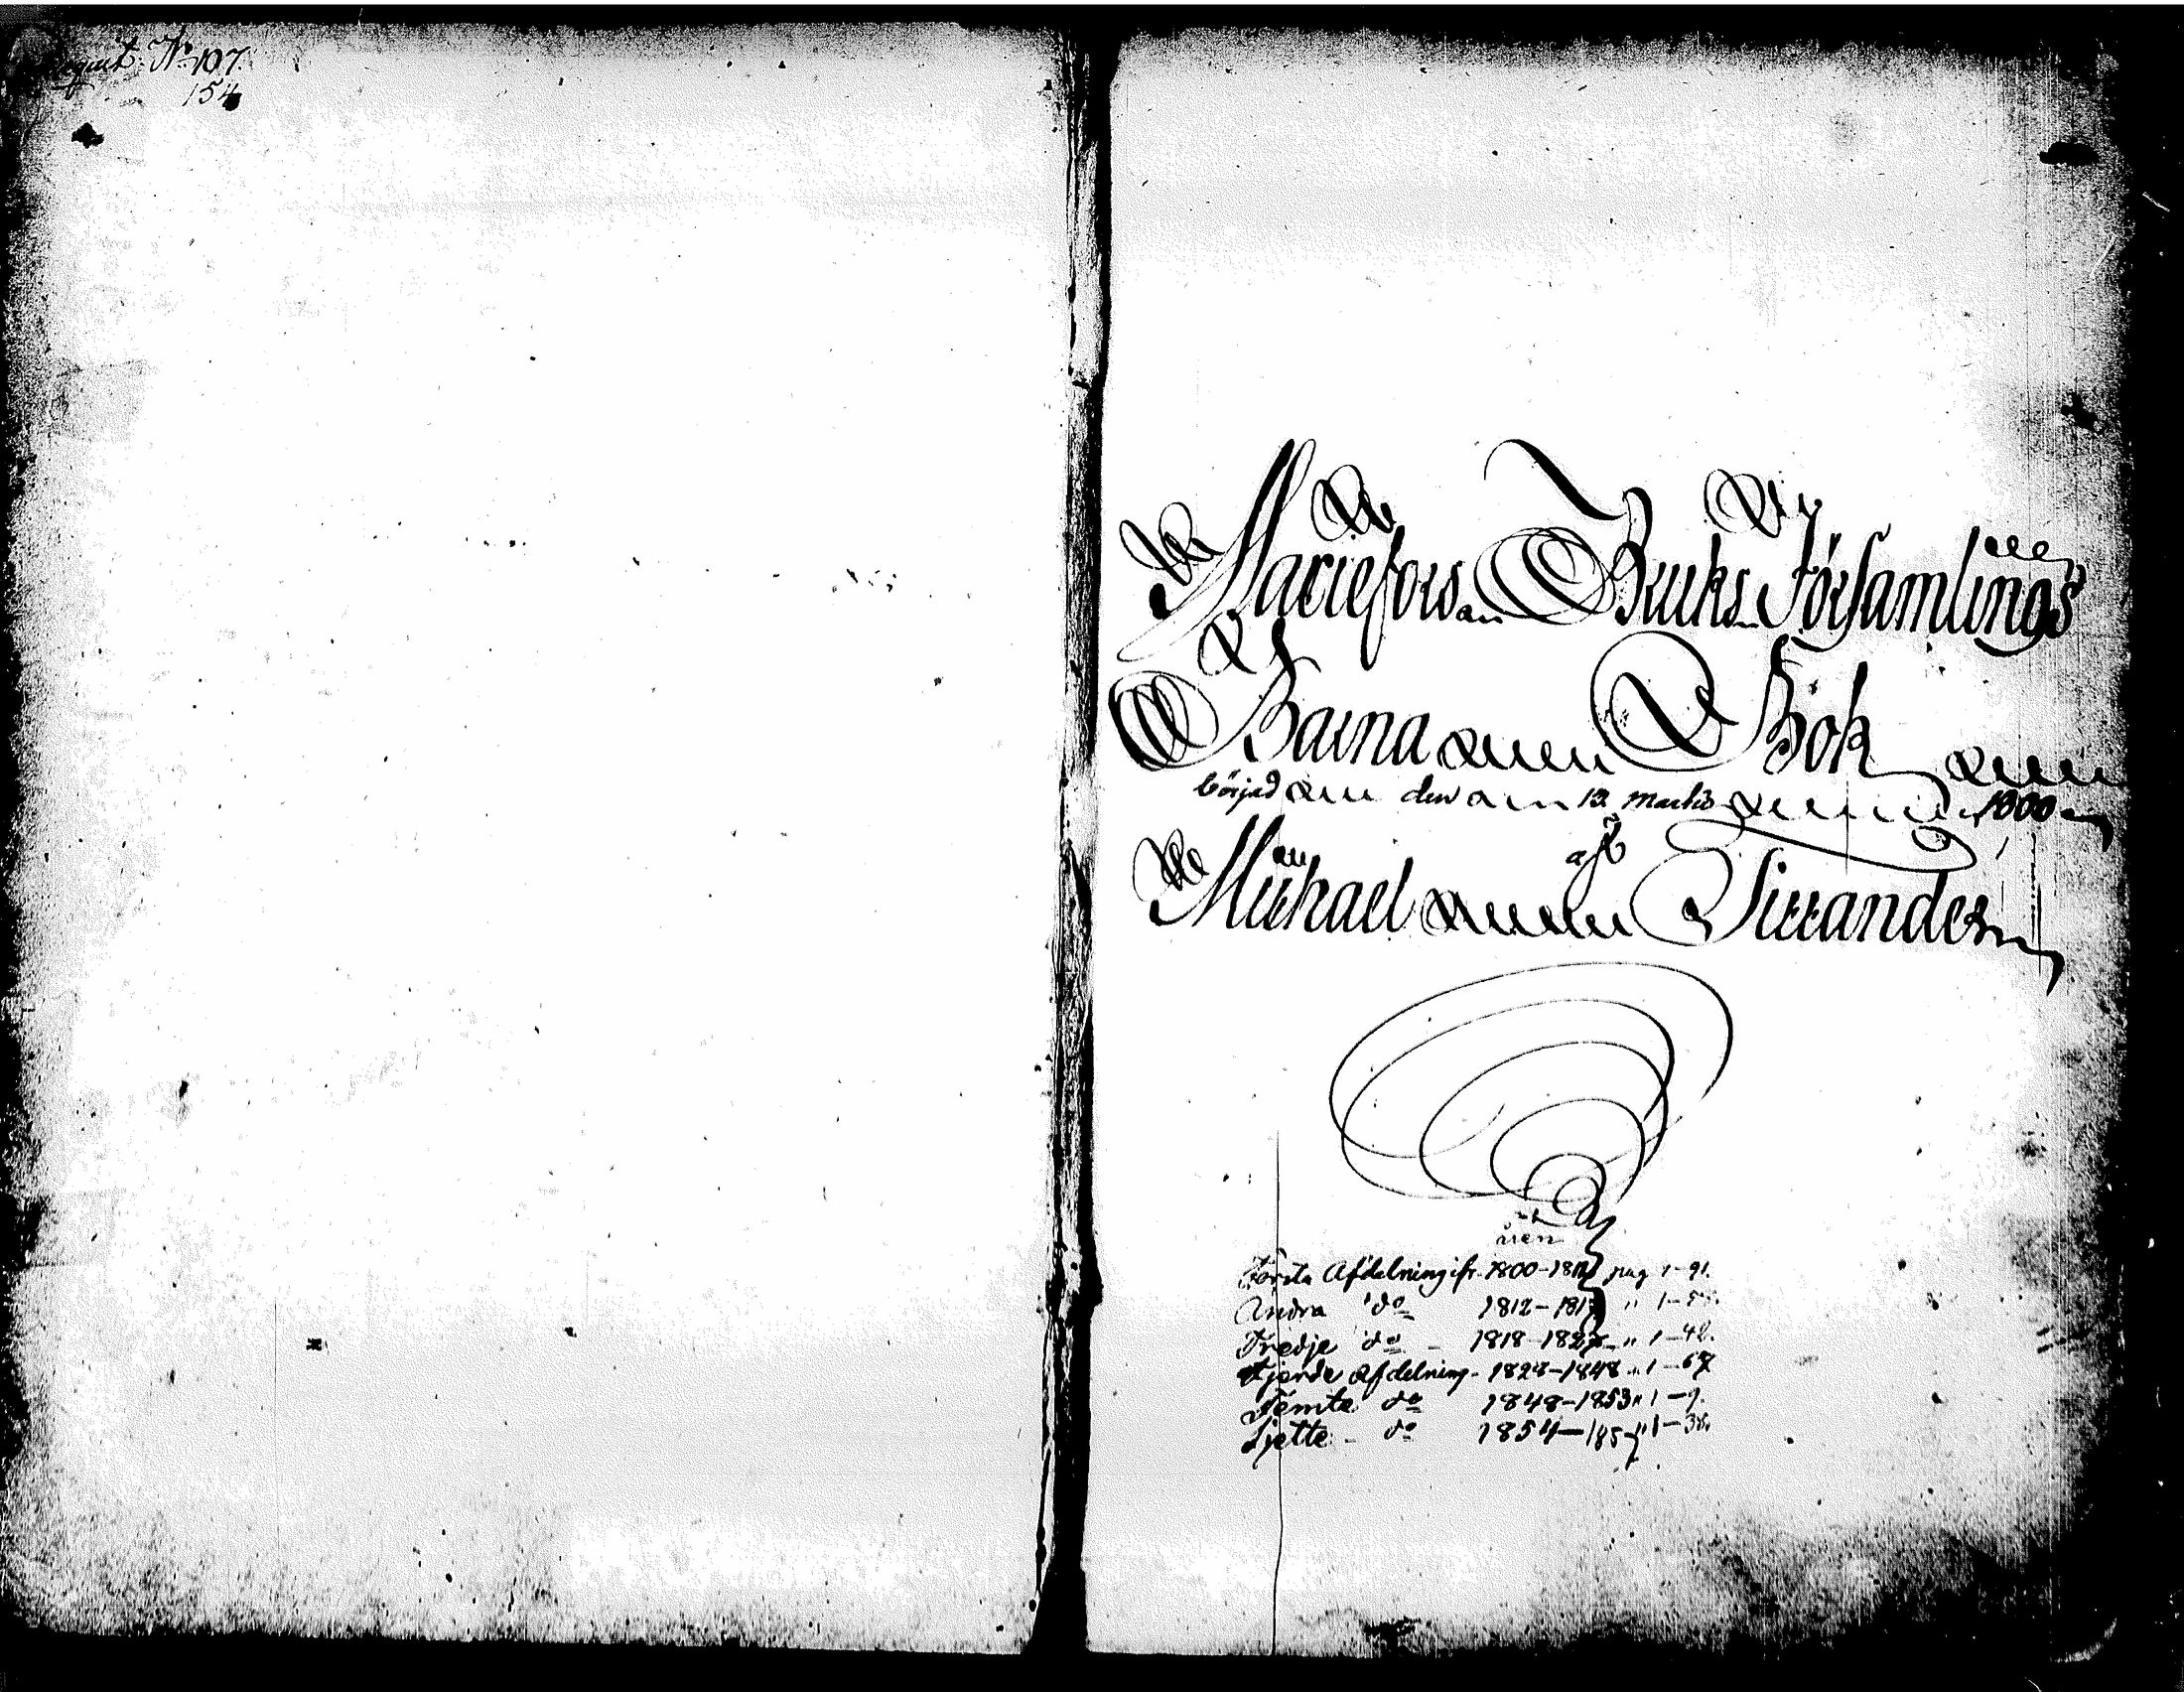 N:o 107.
154
Mariefors Bruks Församlings
Barna Bok
börjad den 12 Martii 1800
af
Michael Sirrander
åren
Första Afdelning ifr. 1800-1812 pag 1-91.
Andra do 1812-1817 " 1-
Tredje do - 1818-1827 - " 1-42.
Fjerde Afdelning - 1828-1848 " 1-67
Femte do 1848-1853 " 1-9.
Sjette - do 1854-185 " 1-38.